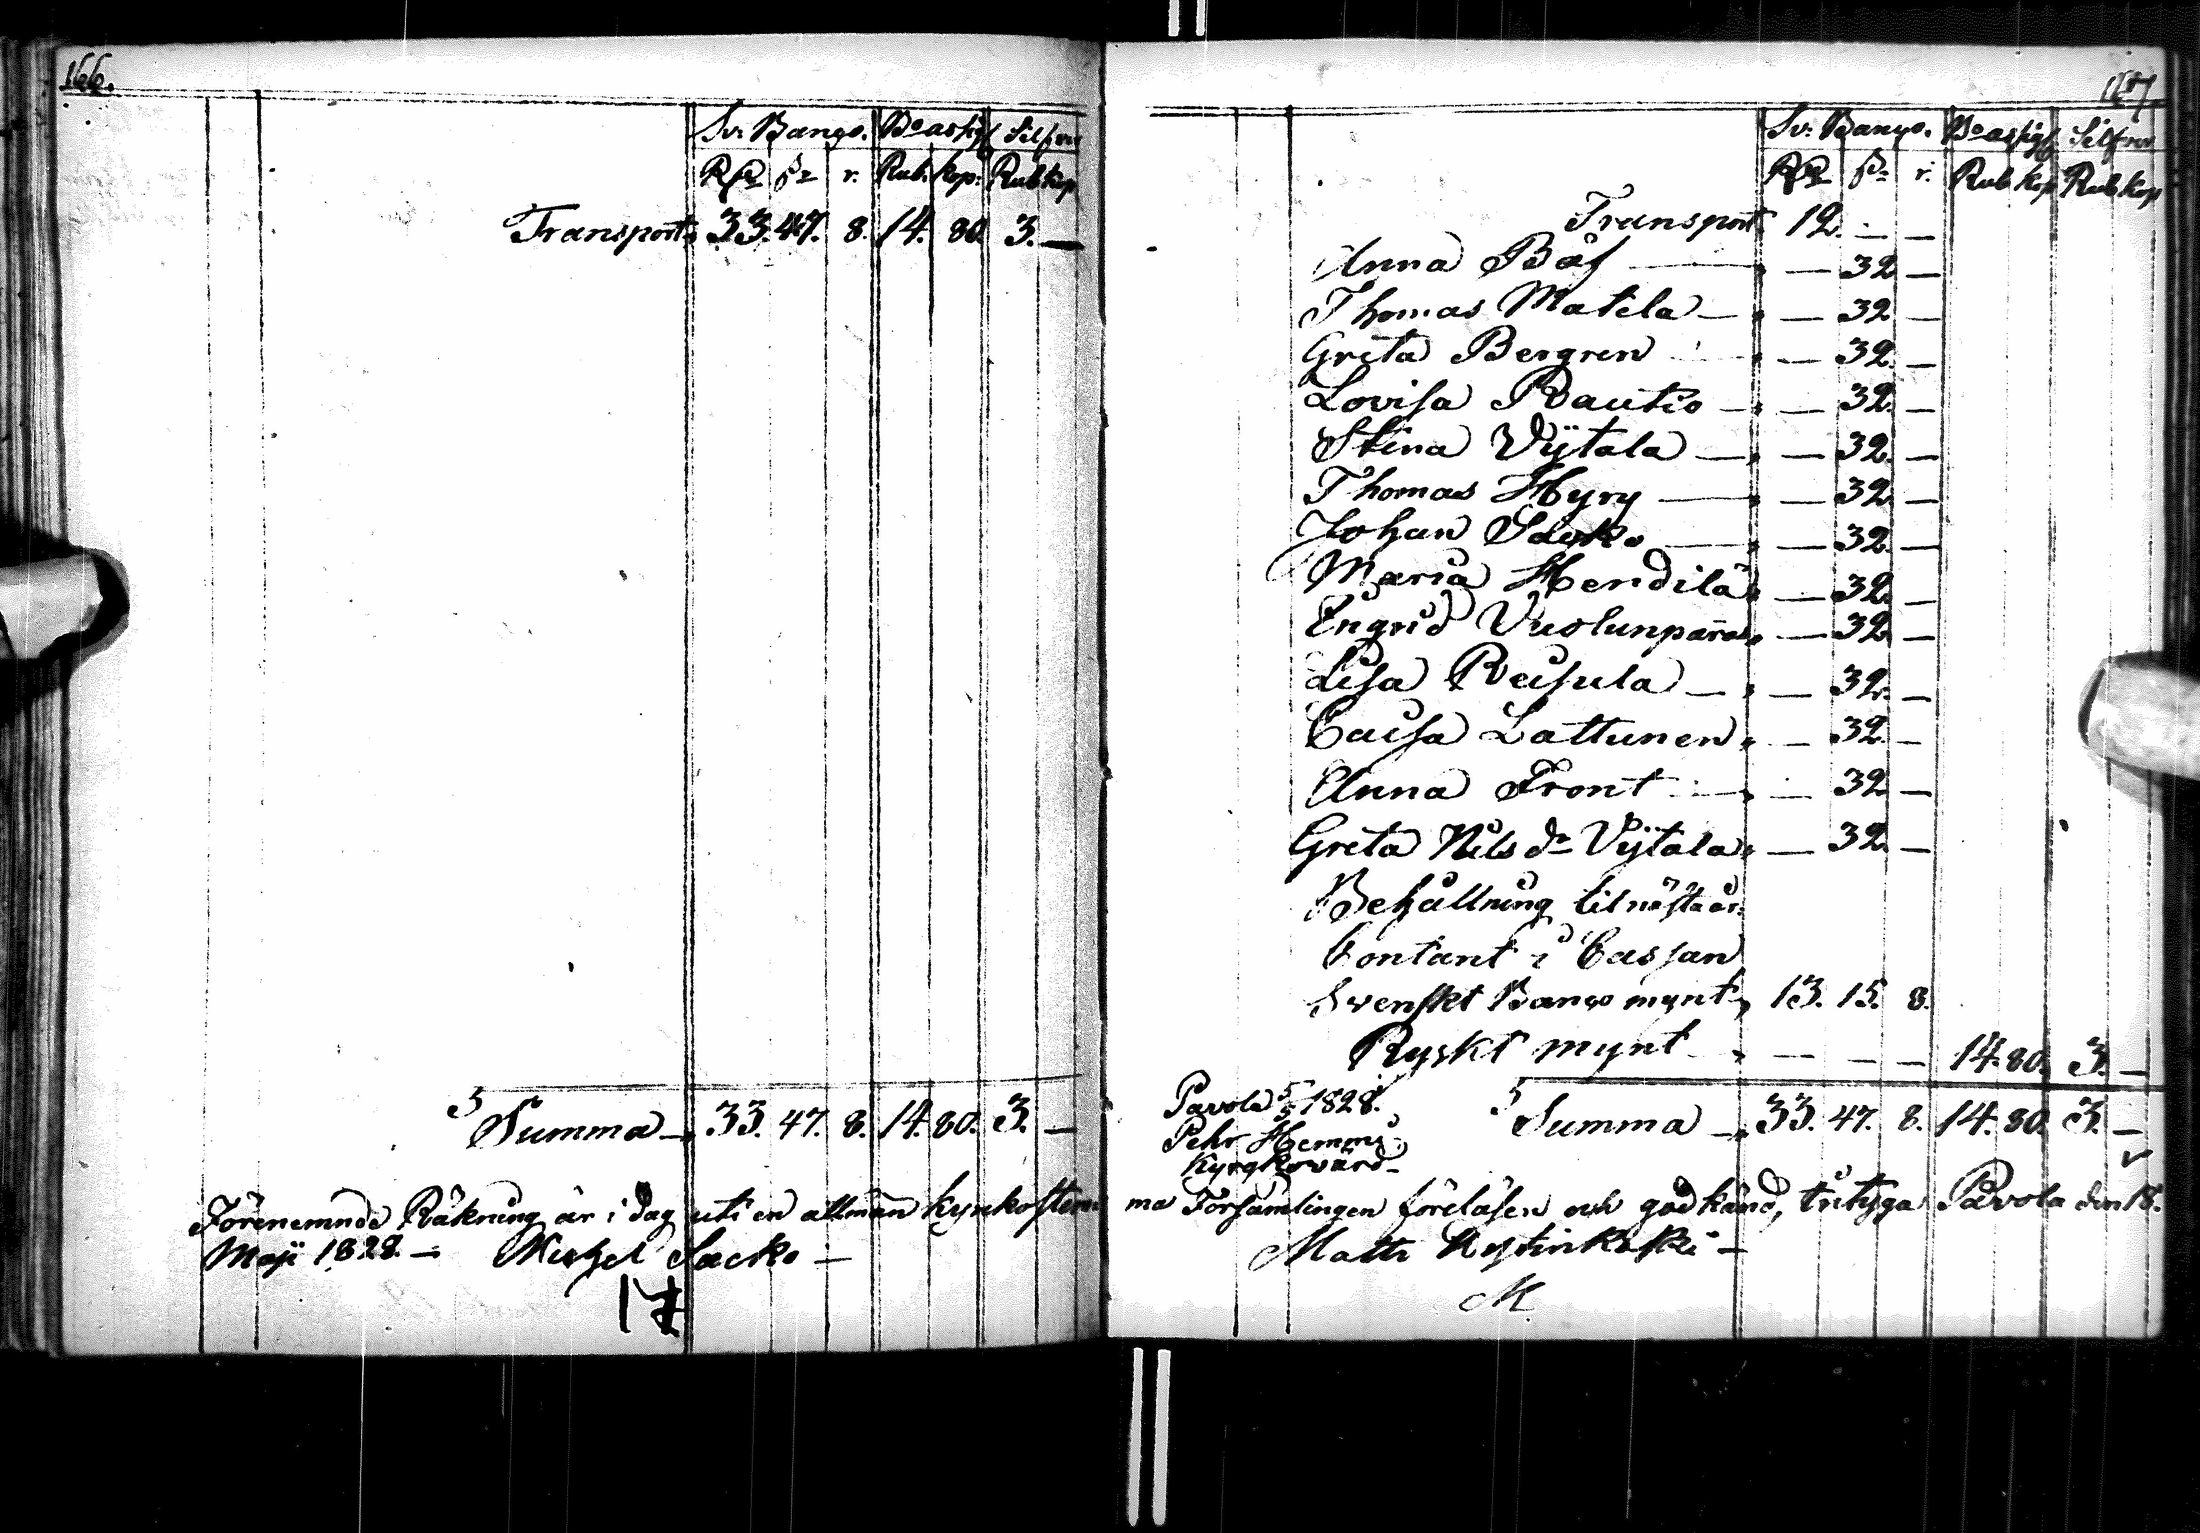 166.
Sv: Banco. Bo assig Silfver
Rd sk r. Rub. kop. Rub kop
Transport 33. 47. 8. 14. 80. 3. —
Summa — 33. 47. 8. 14. 80. 3. —
Förenemnde Räkning är i dag uti en allmän kyrkostem
Maji 1828. — Michel Sacko —
167
Sv: Banco. Bo assig Silfver
Rd sk r. Rub kop Rub kop
Transport 12. — —
Anna Båf — — 32 —
Thomas Matila — — 32 —
Greta Bergren — 32. —
Lovisa Rautio — — 32. —
Stina Vijtala — — 32. —
Thomas Hyry — — 32. —
Johan — — 32. —
Maria Hendilä — 32. —
Engrid Vuolunpara — 32 —
Lisa Reisula — — 32. —
Caisa Lattunen — 32. —
Anna Front — — 32 —
Greta Nils dr Vijtala — 32. —
Behållning til nästa år:
Contant i Cassan
Svenskt Banco mynt 13. 15. 8.
Ryskt mynt — — — — 14. 80. 3. —
Pavola 5/5 1828.
Pehr Hemmi
Kyrgkovärd
Summa — 33. 47. 8. 14. 80. 3. —
ma Församlingen föreläsen och godkänd, bitÿga Pavola den 18.
Matts —